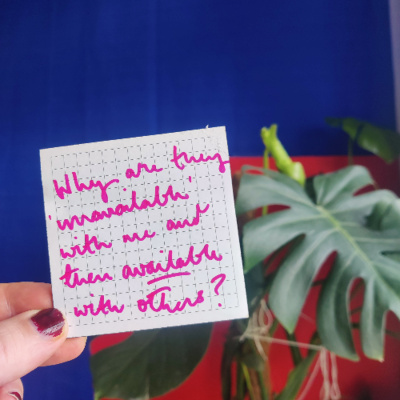 Why are they
'unavailable'
with me and
then available
with others?